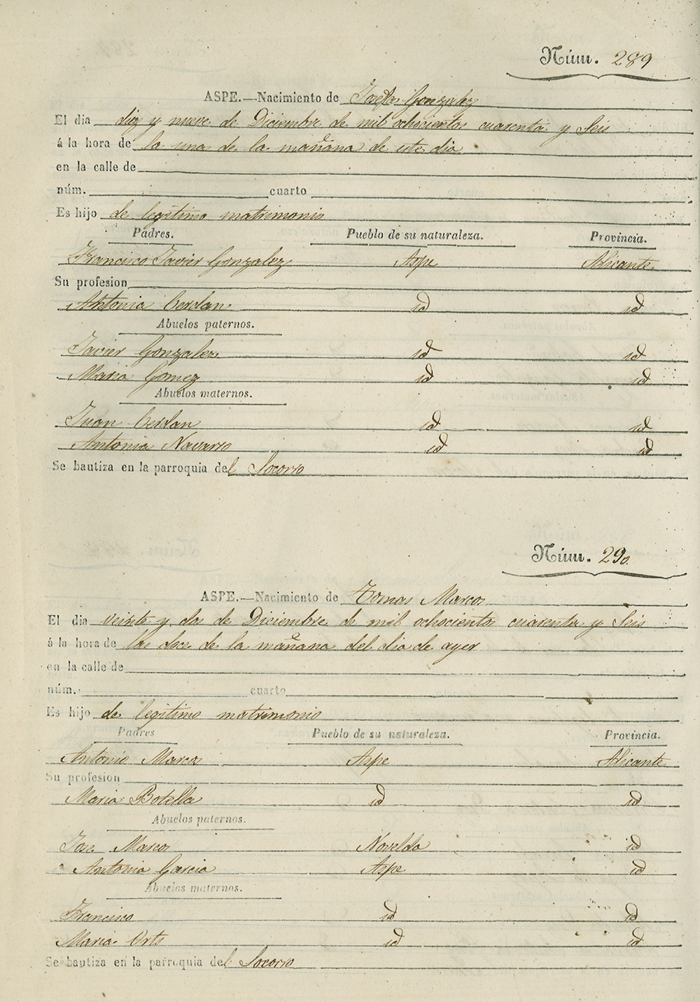 Núm. 289
ASPE.—Nacimiento de Gonzalez
El dia diez y nueve de Diciembre de mil ochocientos cuarenta y Seis
á la hora de la una de la mañana de este dia
en la calle de
núm. cuarto
Es hijo de legitimo matrimonio
Padres. Pueblo de su naturaleza. Provincia.
Francisco Javier Gonzalez Aspe Alicante
Su profesion
Antonia Cerdan id id
Abuelos paternos.
Javier Gonzalez id id
Maria Gomez id id
Abuelos maternos.
Juan Cerdan id id
Antonia Navarro id id
Se bautiza en la parroquia del Socorro
Núm. 290
ASPE.—Nacimiento de Tomas Marco
El dia veinte y dos de Diciembre de mil ochocientos cuarenta y Seis
á la hora de las doce de la mañana del dia de ayer
en la calle de
núm. cuarto
Es hijo de legitimo matrimonio
Padres Pueblo de su naturaleza. Provincia.
Antonio Marco Aspe Alicante
Su profesion
Maria Botella id id
Abuelos paternos.
Jose Marco Novelda id
Antonia Garcia Aspe id
Abuelos maternos.
Francisco id id
Maria Orts id id
Se bautiza en la parroquia del Socorro